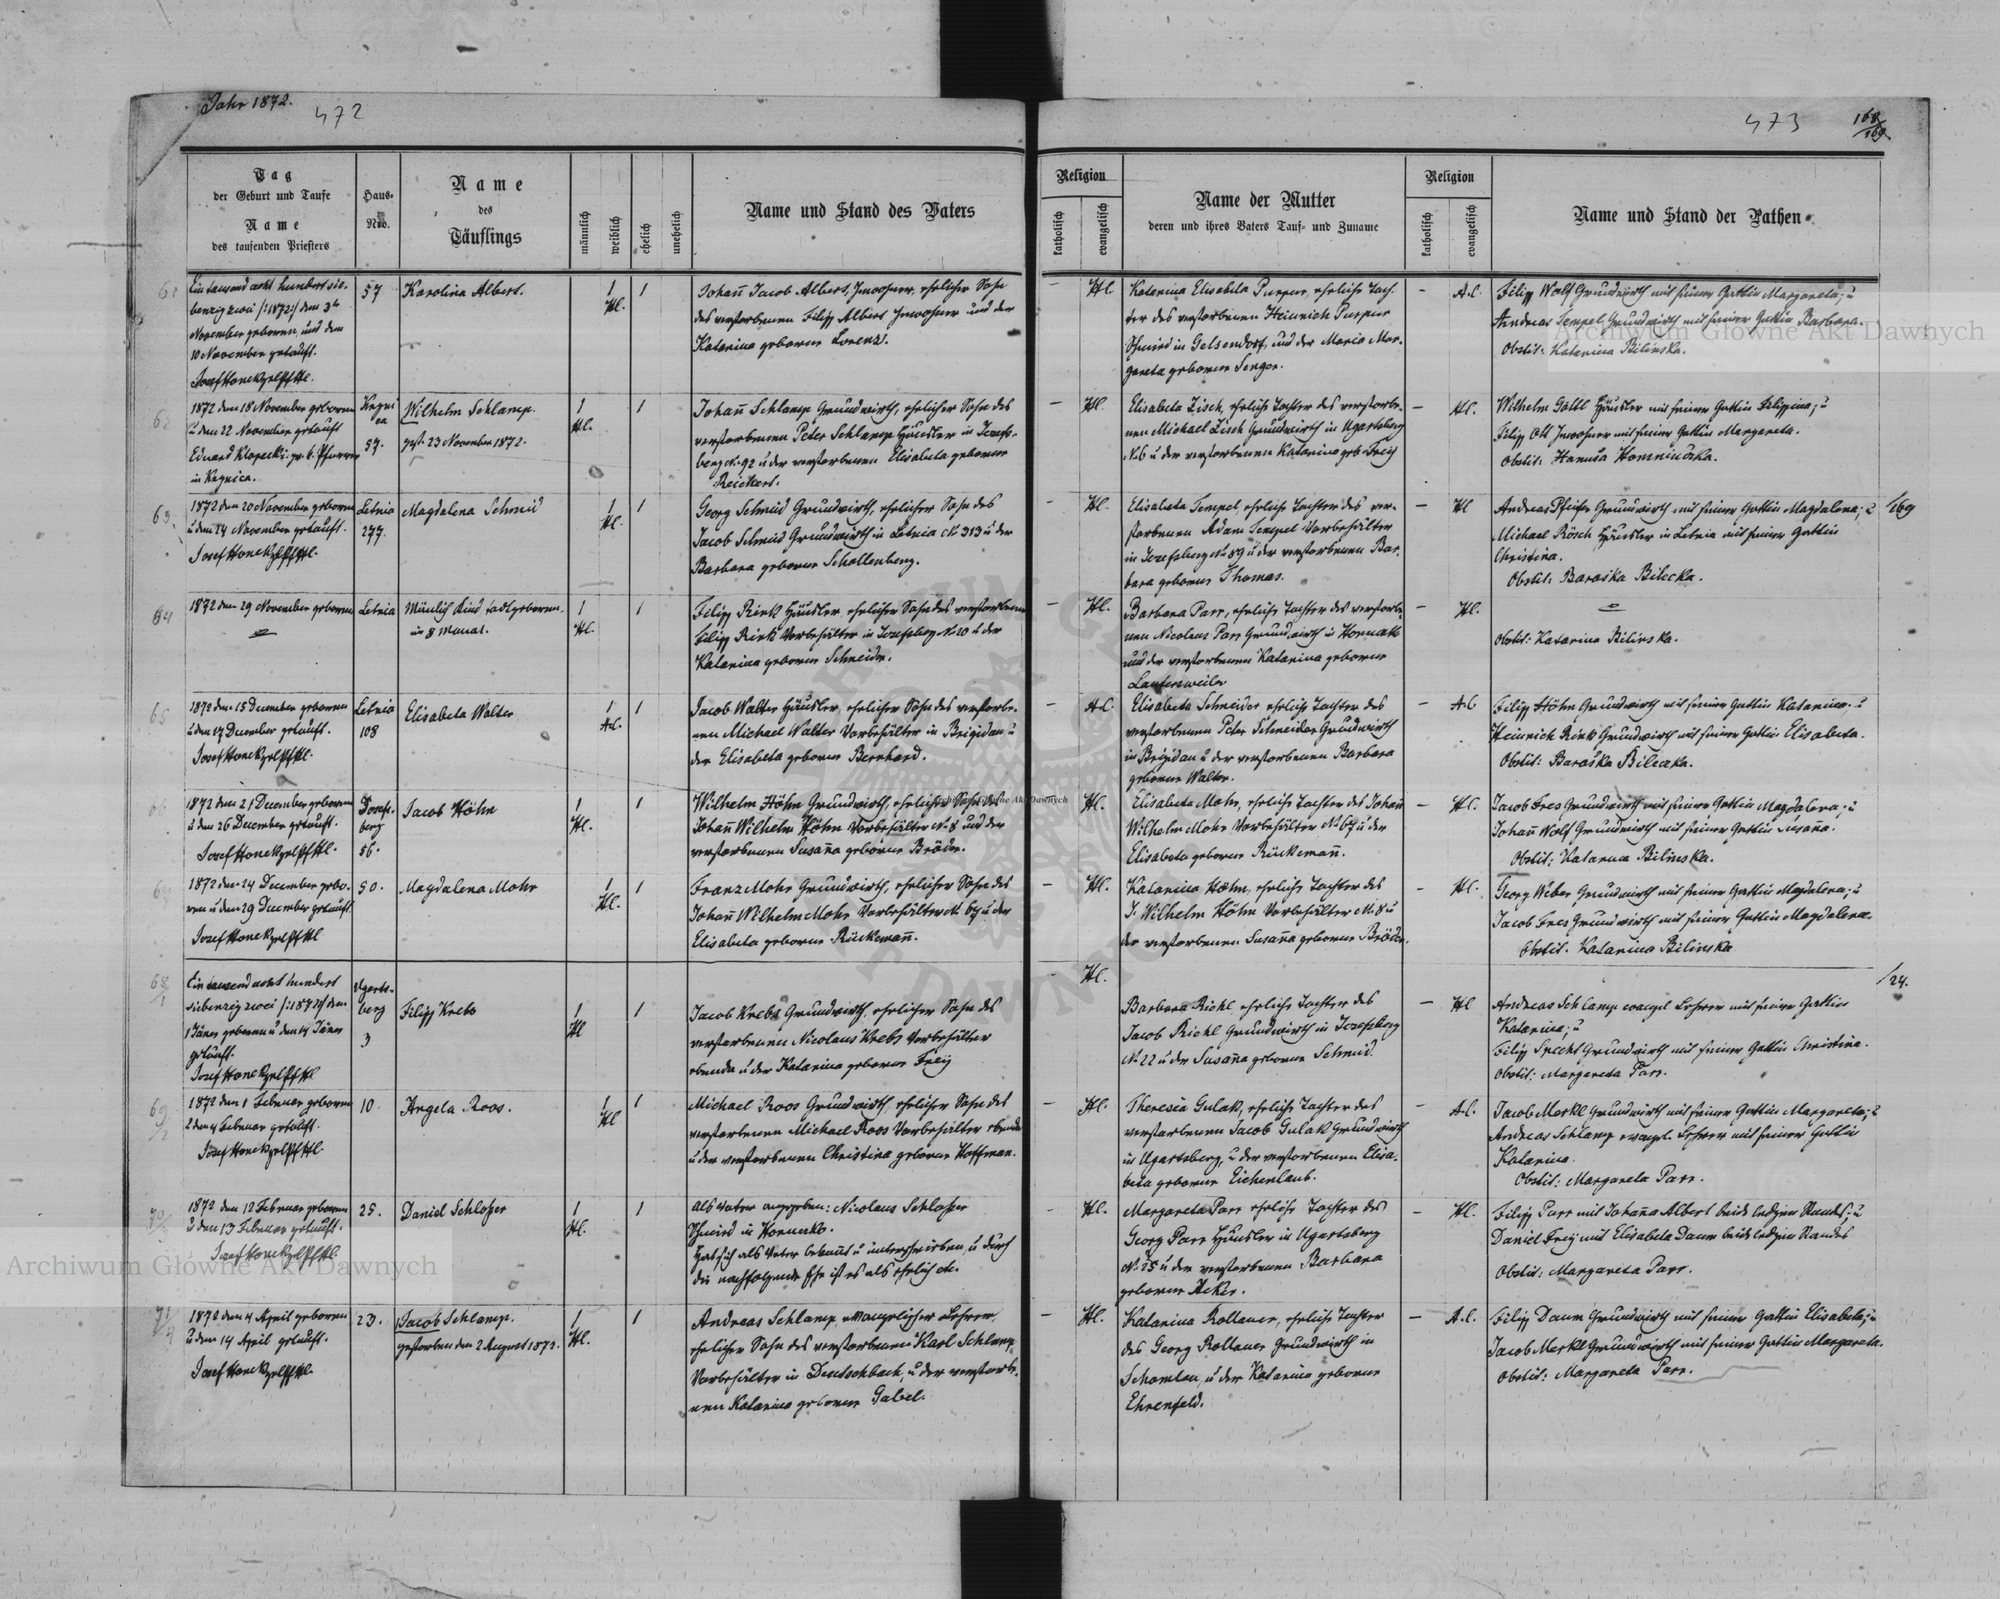 Jahr 1872.
472
473
168/169.
Tag
der Geburt und Taufe
Name
des taufenden Priesters
Haus-
Nro.
Name
des
Täuflings
männlich
weiblich
ehelich
unehelich
Name und Stand des Vaters
Religion
katholisch
evangelisch
Name der Mutter
deren und ihres Vaters Tauf- und Zuname
Religion
katholisch
evangelisch
Name und Stand der Pathen
Ein tausend acht hundert sie-
benzig zwei /:1872:/ den 3t
November geboren und den
10 November getauft.
57
Karolina Albert.
1
Hl.
1
Johann Jacob Albert, Inwohner, ehelicher Sohn
des verstorbenen Filipp Albert Inwohner und der
Katarina geborene Lorenz.
–
Hl
Katarina Elisabeta Purpur, eheliche Toch-
ter des verstorbenen Heinrich Purpur
Schmied in Gelsendorf, und der Maria Mar-
gareta geborene Senger.
–
A.C.
Filipp Wolf Grundwirth mit seiner Gattin Margareta; u
Andreas Tempel Grundwirth mit seiner Gattin Barbara.
Obstit: Katarina Bilinska.
1872 den 18 November geboren
u den 22 November getauft
Eduard Klopecki gr. k. Pfarrer
in Kegnica.
57.
Wilhelm Schlamp.
gest. 23 November 1872.
1
Hl.
1
Johann Schlamp Grundwirth, ehelicher Sohn des
verstorbenen Peter Schlamp Häusler in Josefs-
berg N. 92 u der verstorbenen Elisabeta geborene
Reichert.
–
Hl.
Elisabeta Zisch, eheliche Tochter des verstorbe-
nen Michael Zisch Grundwirth in Ugartsberg
N. 6 u der verstorbenen Katarina geb. Freig
–
Hl.
Wilhelm Göttl Häusler mit seiner Gattin Filippina; u
Filipp Ott Inwohner mit seiner Gattin Margareta.
63.
1872 den 20 November geboren
u den 24 November getauft.
Letnia
277.
Magdalena Schmid
1
Hl.
1
Georg Schmid Grundwirth, ehelicher Sohn des
Jacob Schmid Grundwirth in Letnia N. 313 u der
Barbara geborene Schallenberg.
–
Hl.
Elisabeta Tempel, eheliche Tochter des ver-
storbenen Adam Tempel Vorbehälter
in Josefsberg N. 89 u der verstorbenen Bar-
bara geborene Thomas.
–
Hl
Andreas Pfeifer Grundwirth mit seiner Gattin Magdalena; u
Michael Rösch Häusler in Letnia mit seiner Gattin
Christina.
Obstit: Baraska Bilecka.
/169
64
1872 den 29 November geboren
Letnia
Mänlich Kind todtgeboren.
im 8 Monat.
1
Hl.
1
Filipp Rink Häusler, ehelicher Sohn des verstorbenen
Filipp Rink Vorbehälter in Josefsberg N. 10 u der
Katarina geborene Schneider.
–
Hl.
Barbara Parr, eheliche Tochter des verstorbe-
nen Nicolaus Parr Grundwirth in Horucko
und der verstorbenen Katarina geborene
Lautersweiler
–
Hl.
Obstit: Katarina Bilinska.
65
1872 den 15 December geboren
u den 17 December getauft.
Letnia
108
Elisabeta Walter
1
A.C.
1
Jacob Walter Häusler, ehelicher Sohn des verstorbe-
nen Michael Walter Vorbehälter in Brigidau u
der Elisabeta geborene Bernhard.
–
A.C
Elisabeta Schneider eheliche Tochter des
verstorbenen Peter Schneider Grundwirth
in Brigidau u der verstorbenen Barbara
geborene Walter.
–
A.C
Filipp Höhn Grundwirth mit seiner Gattin Katarina. u
Heinrich Rink Grundwirth mit seiner Gattin Elisabeta.
Obstit: Baraska Bilecka.
1872 den 21 December geboren
u den 26 December getauft.
Josefs-
berg
56.
Jacob Höhn
1
Hl.
1
Wilhelm Höhn Grundwirth, ehelicher Sohn des
Johann Wilhelm Höhn Vorbehälter N. 8 und der
verstorbenen Susaña geborene Bröder.
Hl.
Elisabeta Mohr, eheliche Tochter des Johann
Wilhelm Mohr Vorbehälter N. 67 u der
Elisabeta geborene Rückemañ.
–
Hl.
Jacob Fres Grundwirth mit seiner Gattin Magdalena; u
Johañ Wolf Grundwirth mit seiner Gattin Susaña.
Obstit: Katarina Bilinska.
1872 den 24 December gebo-
ren u den 29 December getauft
50.
Magdalena Mohr
1
Hl.
1
Franz Mohr Grundwirth, ehelicher Sohn des
Johañ Wilhelm Mohr Vorbehälter N. 67 u der
Elisabeta geborene Rückemañ.
–
Hl.
Katarina Hoehn, eheliche Tochter des
J. Wilhelm Höhn Vorbehälter N. 8 u
der verstorbenen Susaña geborene Bröder.
–
Hl.
Georg Weber Grundwirth mit seiner Gattin Magdalena; u
Jacob Fres Grundwirth mit seiner Gattin Magdalena.
Obstit. Katarina Bilinska
68/1
Ein tausend acht hundert
siebenzig zwei /:1872:/ den
1 Jäner geboren u den 14 Jäner
getauft.
Ugarts-
berg
3
Filipp Krebs
1
Hl
1
Jacob Krebs Grundwirth, ehelicher Sohn des
verstorbenen Nicolaus Krebs Vorbehälter
ebenda u der Katarina geborene Freig
–
Hl.
Barbara Richl, eheliche Tochter des
Jacob Richl Grundwirth in Josefsberg
N. 22 u der Susaña geborene Schmid.
–
Hl
Andreas Schlamp evangel. Lehrer mit seiner Gattin
Katarina; u
Filipp Specht Grundwirth mit seiner Gattin Christina.
Obstit: Margareta Parr.
/24.
69/2
1872 den 1 Februar geboren
u den 4 Februar getauft.
10.
Angela Roos.
1
Hl
1
Michael Roos Grundwirth, ehelicher Sohn des
verstorbenen Michael Roos Vorbehälter ebenda
u der verstorbenen Christina geborene Hoffman.
–
Hl.
Theresia Gulak, eheliche Tochter des
verstorbenen Jacob Gulak Grundwirth
in Ugartsberg, u der verstorbenen Elisa-
beta geborene Eichenlaub.
–
A.C.
Jacob Merkl Grundwirth mit seiner Gattin Margareta; u
Andreas Schlamp evangl. Lehrer mit seiner Gattin
Katarina.
Obstit: Margareta Parr.
1872 den 12 Februar geboren
u den 13 Februar getauft.
25.
Daniel Schloßer
1
Hl.
1
Als Vater angegeben: Nicolaus Schloßer
Schmied in Horucko.
Hat sich als Vater bekannt u unterschrieben, u durch
die nachfolgende Ehe ist es als ehelich
–
Hl.
Margareta Parr eheliche Tochter des
Georg Parr Häusler in Ugartsberg
N. 25 u der verstorbenen Barbara
geborene Acker.
–
Hl.
Filipp Parr mit Johaña Albert beide ledigen Standes; u
Daniel Freig mit Elisabeta Daum beide ledigen Standes
Obstit: Margareta Parr.
71/4
1872 den 4 April geboren
u den 14 April getauft.
23.
Jacob Schlamp.
gestorben den 2 August 1872.
1
Hl.
1
Andreas Schlamp, evangelischer Lehrer,
ehelicher Sohn des verstorbenen Karl Schlamp,
Vorbehälter in Deutschbach, u der verstorbe-
nen Katarina geborene Gabel.
–
Hl.
Katarina Rollauer, eheliche Tochter
des Georg Rollauer Grundwirth in
Schomlau, u der Katarina geborene
Ehrenfeld.
–
A.C.
Filipp Daum Grundwirth mit seiner Gattin Elisabeta; u
Jacob Merkl Grundwirth mit seiner Gattin Margareta.
Obstit: Margareta Parr.
Archiwum Główne Akt Dawnych
Archiwum Główne Akt Dawnych